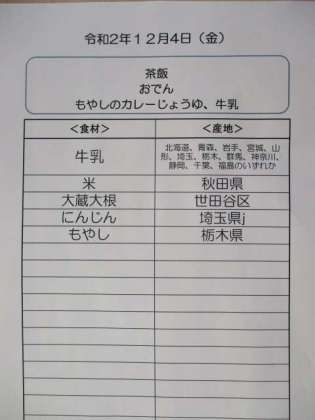 令和2年12月4日（金）
茶飯
おでん
もやしのカレーじょうゆ、牛乳
＜食材＞ ＜産地＞
牛乳 北海道、青森、岩手、宮城、山
形、埼玉、栃木、群馬、神奈川、
静岡、千葉、福島のいずれか
米 秋田県
大蔵大根 世田谷区
にんじん 埼玉県j
もやし 栃木県